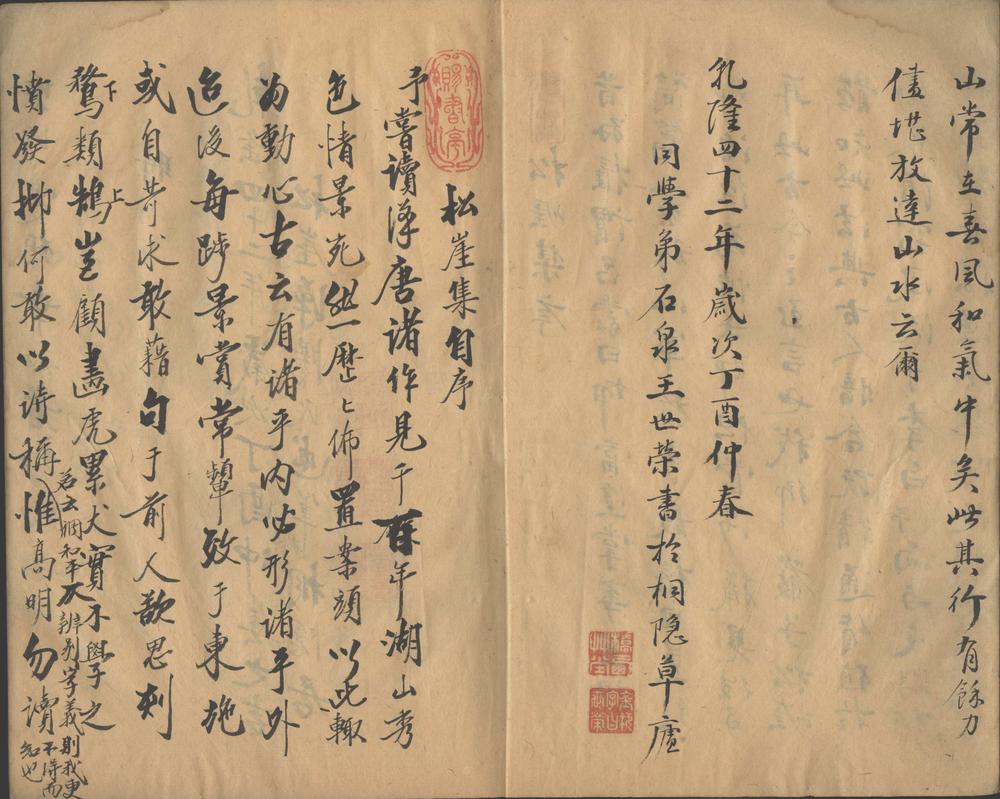 山常在喜風和氣中矣此其行有餘力
儘堪放達山水云爾
乾隆四十二年歲次丁酉仲春
同學弟石泉王世榮書於桐隱草廬
松崖集自序
予嘗讀漢唐諸作見千百年湖山秀
色情景宛然一歷〻佈置案頭以此輙
為動心古云有諸乎內必形諸乎外
迨後每踄景賞常顰效于東施
或自苛求敢藉句于前人歆思刻
鶩類鵠豈顧畵虎累犬實不與予之
下 上
憤發抑何敢以詩稱惟高明勿讀
若云調和平仄辨别字義則我更
不得而知也